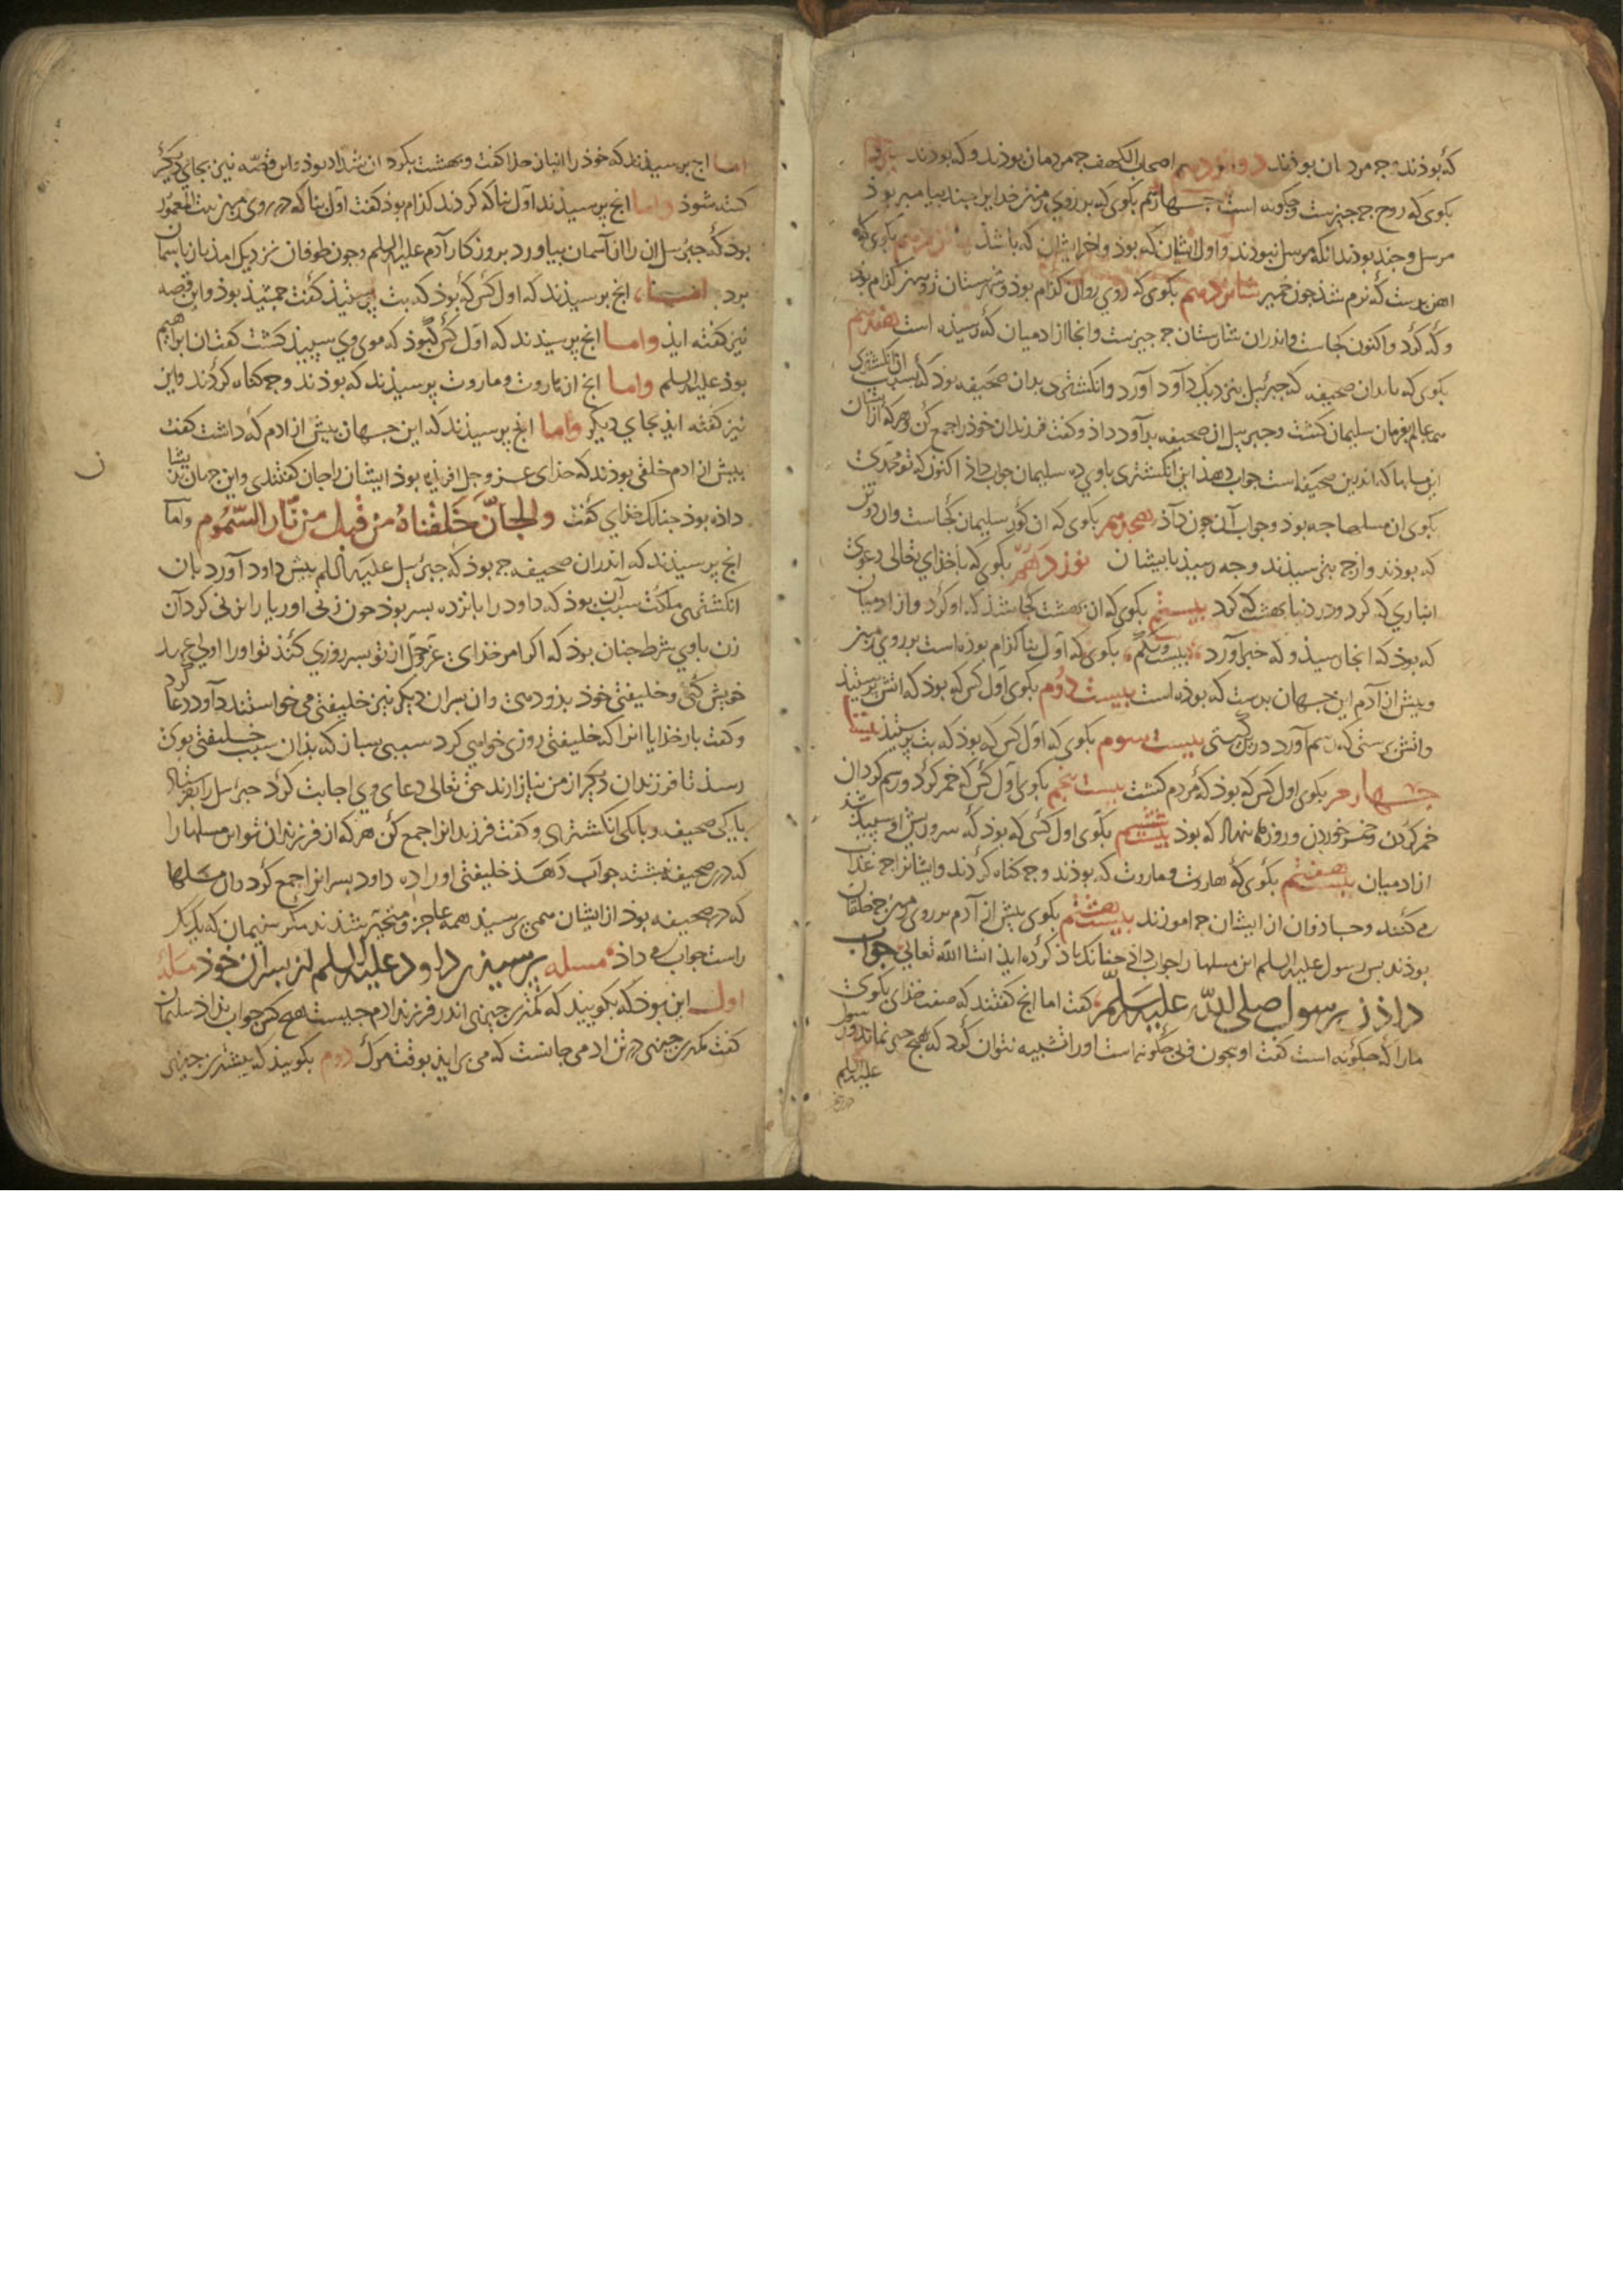 که بوذند چه مردمان بوذند دوازدهم اصحاب الکهف چه مردمان بوذند و که بوذند
بکوی که روح چه چیزست و چکونه است چهاردهم بکوی که بر روی زمین خدایرا چند پیامبر بوذ
مرسل و چند بوذند انکه مرسل نبوذند و اول ایشان که بوذ و اخر ایشان که باشذ پانزدهم بکوی که
اهن بدست که نرم شذ چون خمیر شانزدهم بکوی که روی روان کذام بوذ و شهرستان زوسن کذام بوذ
و که کرد و اکنون کجاست و اندران شارستان چه چیزست و انجا از ادمیان که رسیذه است هفدهم
بکوی که بدان صحیفه که جبرئیل بنزدیک داود آورد و انکشتری بدان صحیفه بوذ که بسبب ان انکشتری
همه عالم بفرمان سلیمان کشت و جبرئیل ان صحیفه بداود داذ و کفت فرزندان خوذ را جمع کن و هرکه از ایشان
این مسلها که اندرین صحیفه است جواب دهذ این انکشتری باوی ده سلیمان جواب داذ اکنون که تو محمدی
بکوی ان مسلها چه بوذ و جواب آن چون داذ هجدهم بکوی که ان کور سلیمان کجاست وان دوتن
که بوذند و از چه بترسیذند و چه رسیذ بایشان نوزدهم بکوی که با خذای تعالی دعوی
انبازی که کرد و در دنیا بهشت که کرد بیستم بکوی که ان بهشت کجا شذ که او کرد و از ادمیان
که بوذ که انجا رسیذ و که خبر آورد بیست و یکم بکوی که اول بنا کذام بوذه است بر روی زمین
و پیش از آدم این جهان بدست که بوذه است بیست دوم بکوی اول کس که بوذ که اتش پرستیذ
و اتش پرستی که رسم آورد در بت پرستی بیست سوم بکوی که اول کس که بوذ که بت پرستیذ بیست
چهارم بکوی اول کس که بوذ که مردم کشت بیست پنجم بکوی اول کس که خمر کرد و رسم کردان
خمر کردن و خمر خوردن و روزکار نهاذ که بوذ بیست ششم بکوی اول کسی که بوذ که سر و ریش او سپیذ شذ
از ادمیان بیست هفتم بکوی که هاروت و ماروت که بوذند و چه کناه کردند و ایشانرا چه عذاب
می کنند و جاذوان از ایشان چه اموزند بیست هشتم بکوی پیش از آدم بر روی زمین چه خلقان
بوذند پس رسول علیه السلم این مسلها را جواب داذ چنانک یاذ کرده ایذ انشا الله تعالی جواب
داذن رسول صلی الله علیه وسلم کفت اما انچ کفتند که صفت خذای بکوی
ما را که چکونه است کفت او بیچون و بی چکونه است او را تشبیه نتوان کرد که هیچ چیز نماند و رسول
علیه السلم
اما انچ پرسیذند که خوذ را انباز خذا کفت و بهشت بکرد ان شداد بوذ و این قصه نیز بجای دیکر
کفته شوذ واما انچ پرسیذند اول بنا که کردند کذام بوذ کفت اول بنا که در روی زمین بیت المعمور
بوذ که جبرئیل ان را از آسمان بیاورد بروزکار آدم علیه السلم و چون طوفان نزدیک امذ باز باسمان
برد انچ پرسیذند که اول کس که بوذ که بت پرستیذ کفت جمشیذ بوذ و این قصه
نیز کفته ایذ واما انچ پرسیذند که اول کس که بوذ که موی وی سپیذ کشت کفت ان ابراهیم
بوذ علیه السلم واما انچ از هاروت و ماروت پرسیذند که بوذند و چه کناه کردند و این
نیز کفته ایذ بجای دیکر واما انچ پرسیذند که این جهان پیش از ادم که داشت کفت
پیش از ادم خلقی بوذند که خذای عز و جل افریذه بوذ ایشان را جان کفتندی و این جهان بذیشان
داذه بوذ چنانک خذای کفت والجان خلقناه من قبل من نار السموم واما
انچ پرسیذند که اندران صحیفه چه بوذ که جبرئیل علیه السلم پیش داود آورد با ان
انکشتری مملکت سبب آن بوذ که داود را پانزده پسر بوذ چون زن اوریا را بزنی کرد آن
زن با وی شرط چنان بوذ که اکر مر خذای عز و جل از تو پسر روزی کند تو او را ولی عهد
خویش کنی و خلیفتی خوذ بذو دهی وان پسران دیکر نیز خلیفتی می خواستند داود دعا کرد
و کفت بار خذایا انرا که خلیفتی روزی خواهی کرد سببی بساز که بذان سبب خلیفتی بوی
رسذ تا فرزندان دیکر از من نیازارند حق تعالی دعای وی اجابت کرد جبرئیل را بفرستاذ
با یکی صحیفه و با یکی انکشتری و کفت فرزندانرا جمع کن هر که از فرزندان تو این مسلها را
که در صحیفه نبشته جواب دهذ خلیفتی او را ده داود پسرانرا جمع کرد وان مسلها
که در صحیفه بوذ از ایشان همی پرسیذ همه عاجز و متحیر شذند مکر سلیمان که یک یک
راست جواب می داذ مسله پرسیذن داود علیه السلم از پسران خوذ مسلهٔ
اول این بوذ که بکوییذ که کمترین چیزی اندر فرزند ادم چیست هیچ کس جواب نداذ سلیمان
کفت کمترین چیزی در تن ادمی جانست که می برایذ بوقت مرک دوم بکوییذ که بیشترین چیزی